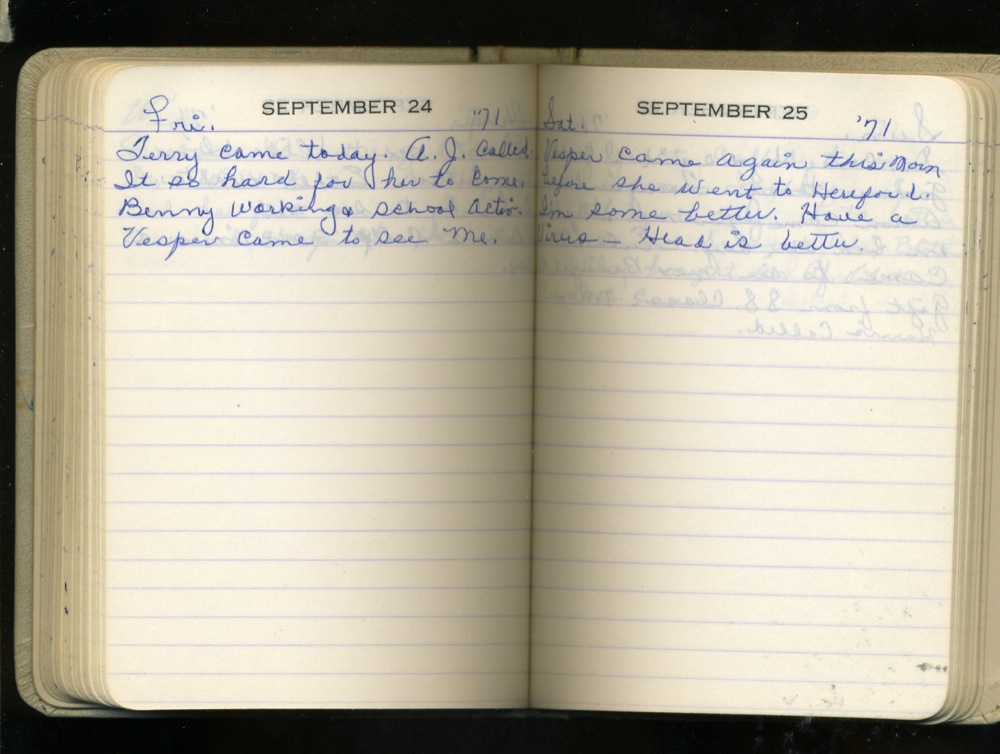 SEPTEMBER 24
Fri. '71
Terry came today. A. J. Called.
It so hard for her to come.
Benny working & school activ.
Vesper came to see me.
SEPTEMBER 25
Sat. '71
Vesper came again this morn
before she went to Hereford.
I'm some better. Have a
Virus – Head is better.